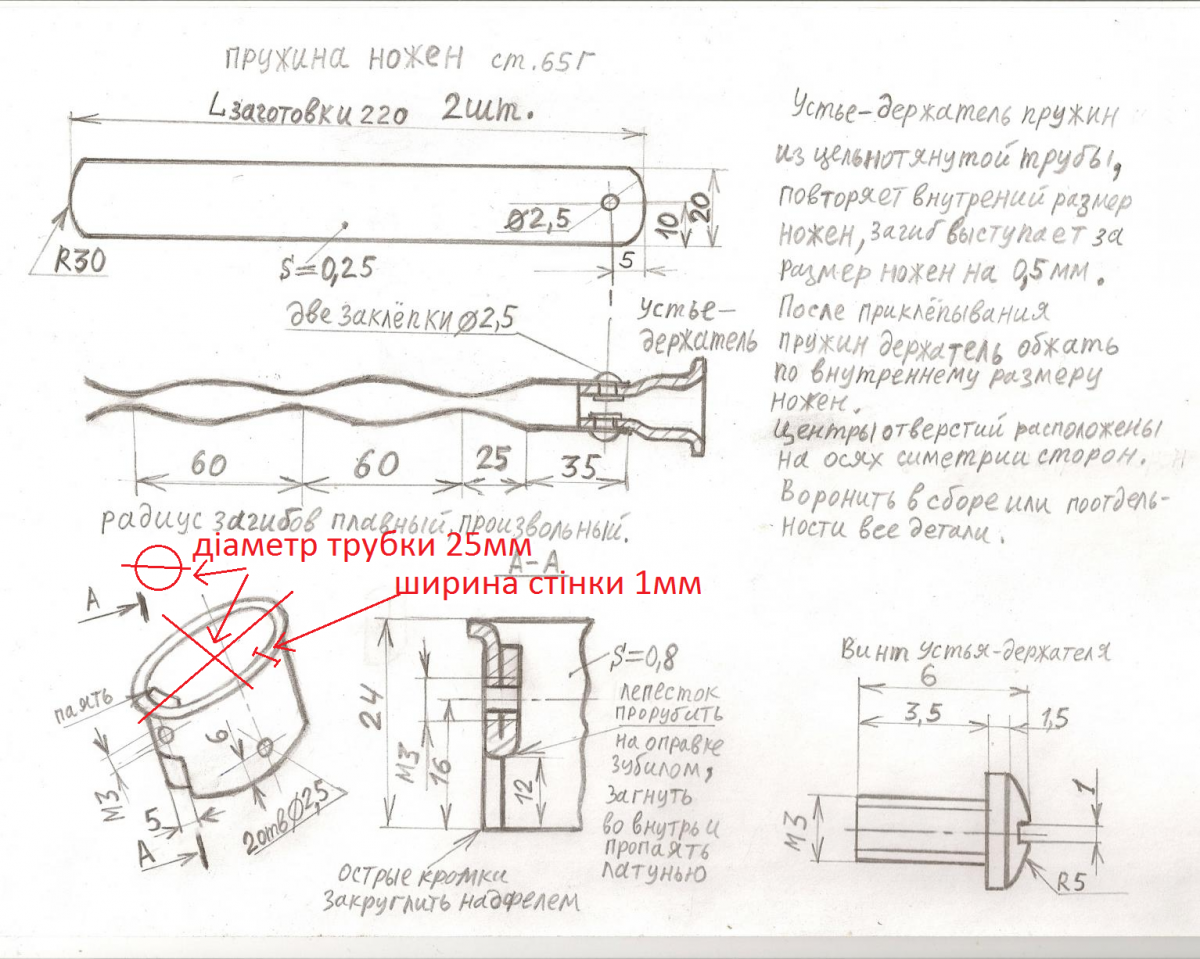 пружина ножен ст.65Г
L заготовки 220 2шт.
R30
S=0,25
Ø2,5
10
20
5
две заклёпки Ø2,5
Устье-
держатель
60
60
25
35
радиус загибов плавный, произвольный.
Устье-держатель пружин
из цельнотянутой трубы,
повторяет внутрений размер
ножен, загиб выступает за
размер ножен на 0,5 мм.
После приклёпывания
пружин держатель обжать
по внутреннему размеру
ножен.
Центры отверстий расположены
на осях симетрии сторон.
Воронить в сборе или поотдель-
ности все детали.
діаметр трубки 25мм
ширина стінки 1мм
А
паять
М3
5
6
2отв Ø2,5
А
А-А
24
М3
16
12
S=0,8
лепесток
прорубить
на оправке
зубилом,
загнуть
во внутрь и
пропаять
латунью
острые кромки
закруглить надфелем
Винт Устья-держателя
6
3,5
1,5
М3
1
R5